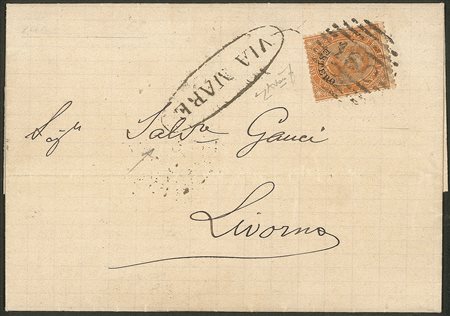 VIA MARE
Sigr Salvre Gauci
Livorno